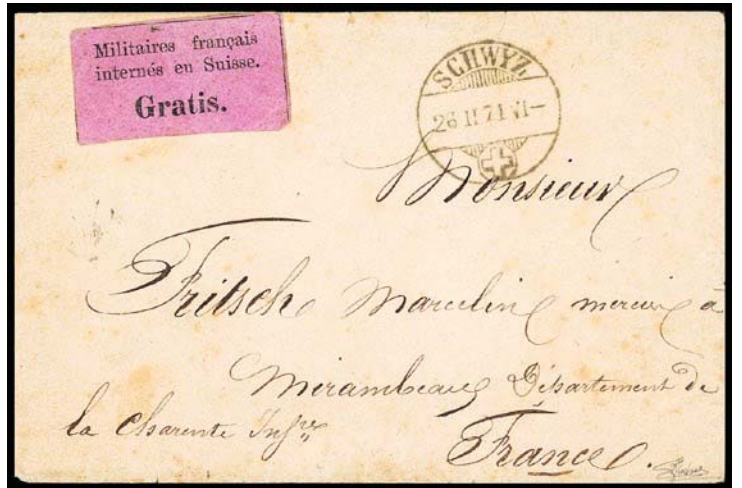 Militaires français
internés en Suisse.
Gratis.
SCHWYZ
26 II 71 VI–
Monsieur
Fritsch Marcelin mercier à
Mirambeau Département de
la Charente Infre
France.